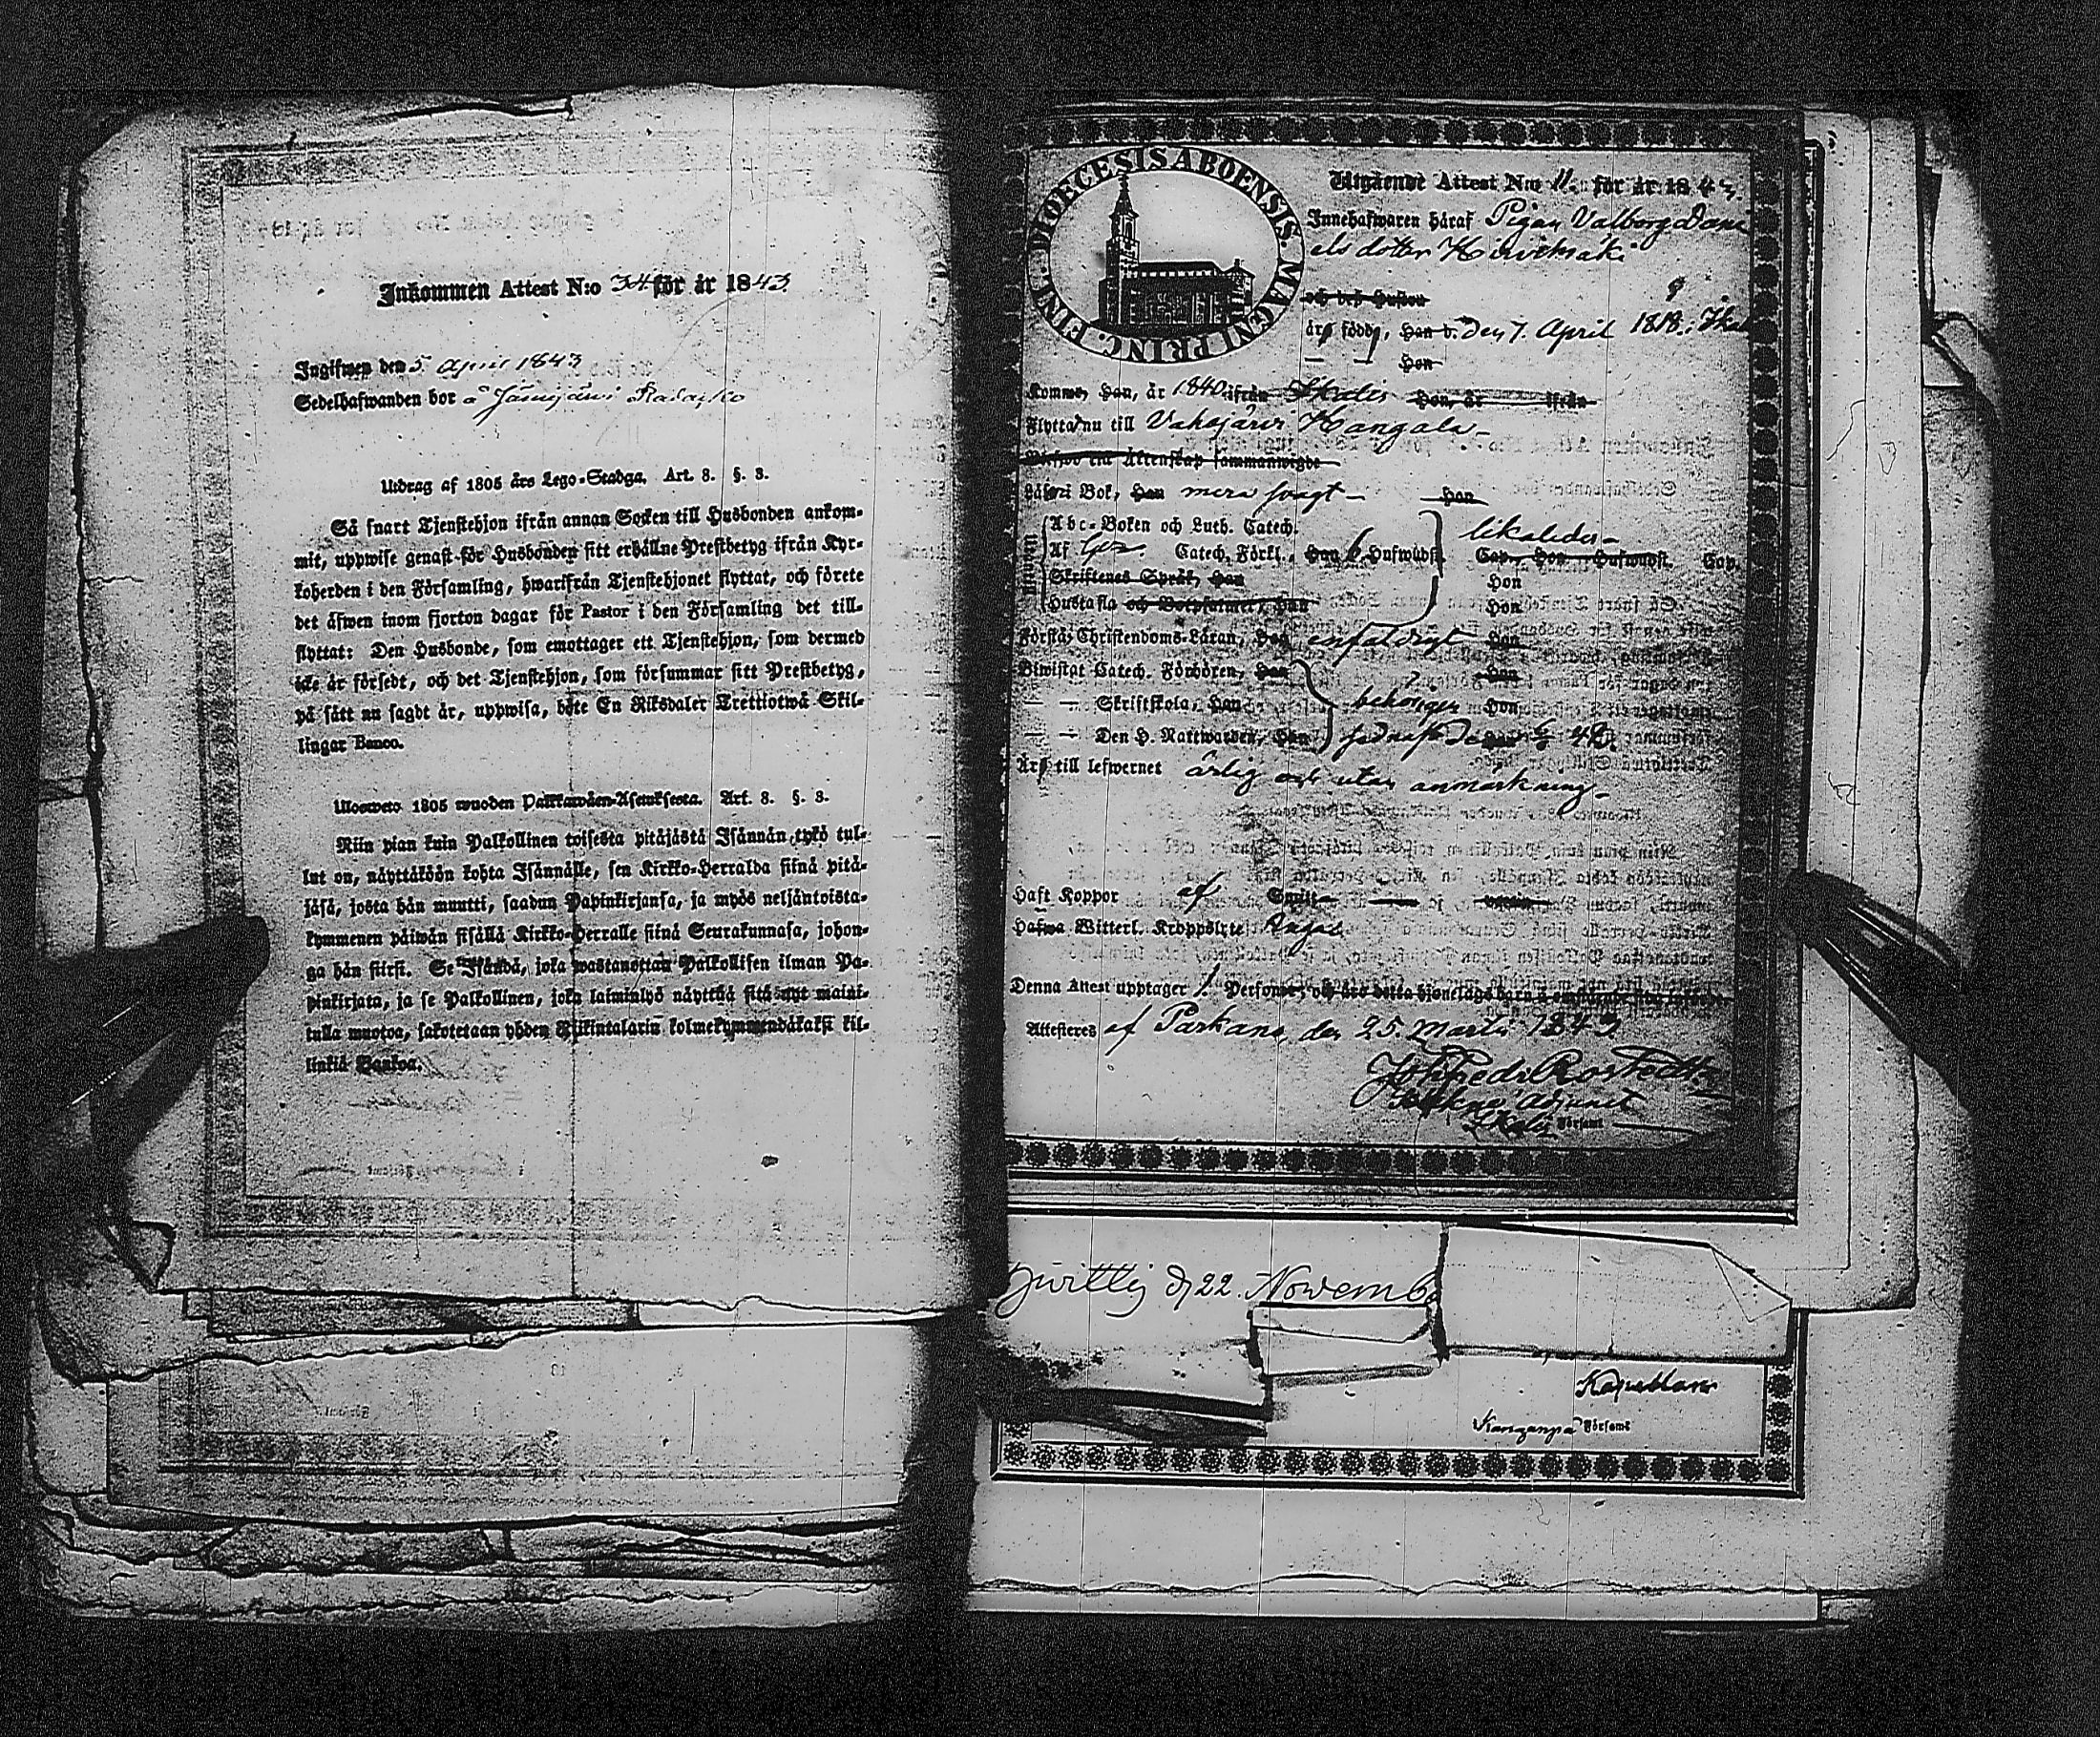 Inkommen Attest N:o 34 för år 1843
Ingifwen den 5 April 1843
Sedelhafwanden bor å Jämijärvi
Utdrag af 1805 års Lego-Stadga. Art. 8. §. 3.
Så snart Tjenstehjon ifrån annan Socken till Husbonden ankom-
mit, uppwise genast för Husbonden sitt erhållne Prestbetyg ifrån Kyr-
koherden i den Församling, hwarifrån Tjenstehjonet flyttat, och förete
det äfwen inom fjorton dagar för Pastor i den Församling det till-
flyttat: Den Husbonde, som emottager ett Tjenstehjon, som dermed
icke är försedt, och det Tjenstehjon, som försummar sitt Prestbetyg,
på sätt nu sagdt är, uppwisa, böte En Riksdaler Trettiotwå Skil-
lingar Banco.
Ulosweto 1805 wuoden Palkkawäen-Asetuksesta. Art. 8. §. 3.
Niin pian kuin Palkollinen toisesta pitäjästä Isännän tykö tul-
lut on, näyttäköön kohta Isännälle, sen Kirkko-Herralda siinä pitä-
jäsä, josta hän muutti, saadun Papinkirjansa, ja myös neljäntoista-
kymmenen päiwän sisällä Kirkko-Herralle siinä Seurakunnasa, johon-
ga hän siirsi. Se Isändä, joka wastanottaa Palkollisen ilman Pa-
pinkirjata, ja se Palkollinen, joka laiminlyö näyttää sitä nyt maini-
tulla muotoa, sakotetaan yhden Riikintalarin kolmekymmendäkaksi kil-
linkiä Bankoa.
FINL. DIOECESIS ABOENSIS. MAGNI PRINC.
Utgående Attest N:o 11. för år 1843.
Innehafwaren häraf Pigan Valborg Dani
els dotter
och dess Hustru
är född, Han d. den 7. April 1818. i Ikal
— — Hon
Kommen Han, år 1840 ifrån Ikalis Hon, år ifrån
Flyttar nu till Kangala
Äktenskap sammanwigde
Läser i Bok, Han mera svagt — Hon
Utantill
Abc-Boken och Luth. Catech. likaledes
Af Catech. Förkl., Han 6 Hufwudst. Cap. Hon Hufwudst. Cap.
Skriftenes Språk, Han Hon
Hustafla och Botpsalmer, Han Hon
Förstår Christendoms-Läran, Han enfaldigt Hon
Biwistat Catech. Förhören, Han Hon
— — Skriftskola, Han behörigen Hon
— — Den H. Nattwarden, Han
Är till lefwernet ärlig och utan anmärkning
Haft Koppor af
Hafwa Witterl. Kroppslyte Inga
Denna Attest upptager 1. Person
Attesteras af Parkano den 25. Martii 1843
Adjunct
Ikalis Församl
d. 22. Novemb
Kapellan
Kanganpä Församl